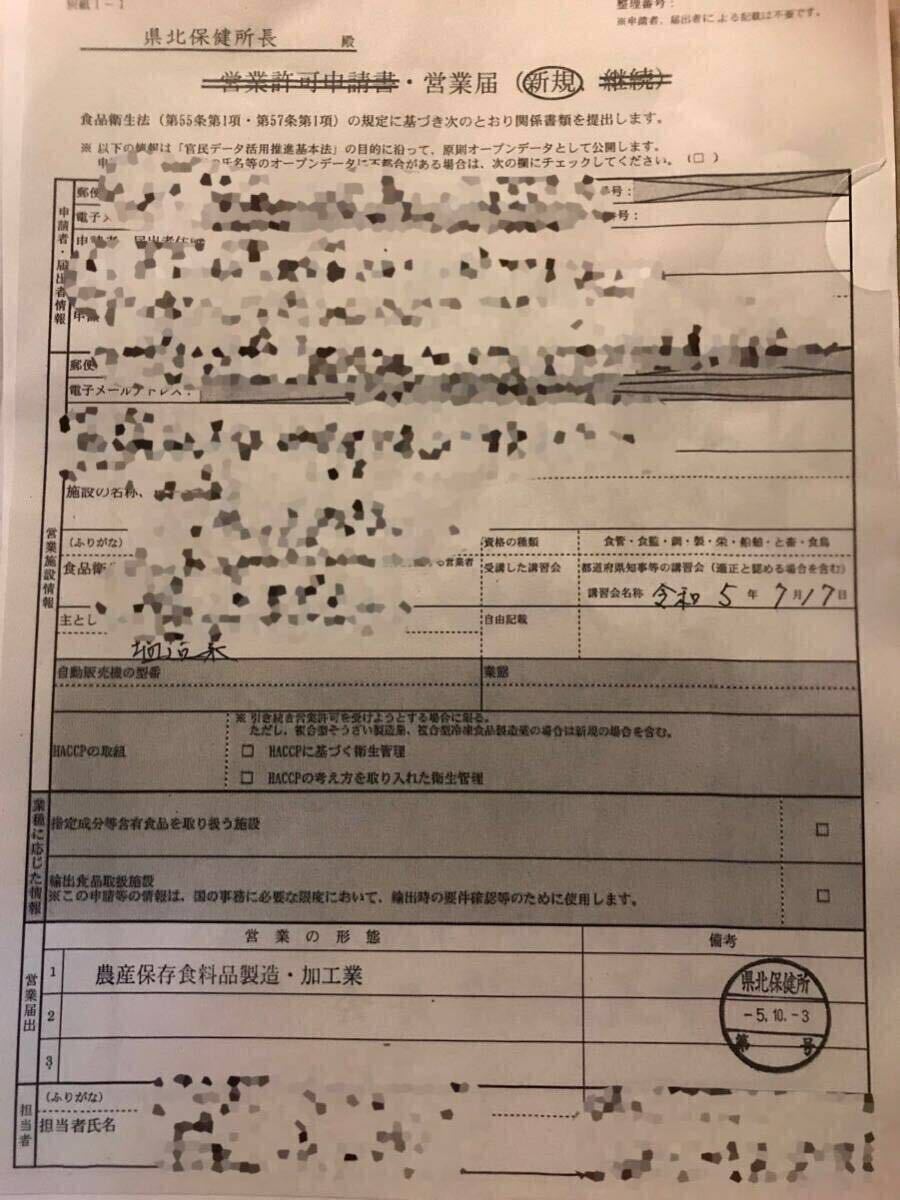 別紙1-1
整理番号:
※申請者、届出者による記載は不要です。
県北保健所長 殿
営業許可申請書・営業届(新規、継続)
食品衛生法(第55条第1項・第57条第1項)の規定に基づき次のとおり関係書類を提出します。
※ 以下の情報は「官民データ活用推進基本法」の目的に沿って、原則オープンデータとして公開します。
申 氏名等のオープンデータに不都合がある場合は、次の欄にチェックしてください。(□)
申請者・届出者情報
郵便 番号:
電子メ 番号:
申請者・届出者住所
申請
営業施設情報
郵便
電子メールアドレス:
施設の名称、
(ふりがな)
資格の種類
食管・食監・調・製・栄・船舶・と畜・食鳥
食品衛
営業者
受講した講習会
都道府県知事等の講習会(適正と認める場合を含む)
講習会名称 令和 5 年 7 月 17 日
主とし
自由記載
自動販売機の型番
業態
HACCPの取組
※ 引き続き営業許可を受けようとする場合に限る。
ただし、複合型そうざい製造業、複合型冷凍食品製造業の場合は新規の場合を含む。
□ HACCPに基づく衛生管理
□ HACCPの考え方を取り入れた衛生管理
業種に応じた情報
指定成分等含有食品を取り扱う施設
□
輸出食品取扱施設
※この申請等の情報は、国の事務に必要な限度において、輸出時の要件確認等のために使用します。
□
営業届出
営業の形態
備考
1 農産保存食料品製造・加工業
2
3
県北保健所
-5.10.-3
第 号
担当者
(ふりがな)
担当者氏名